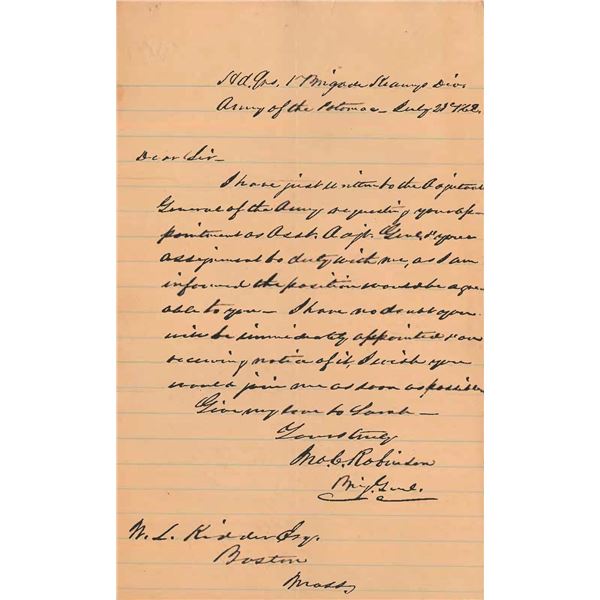 Hd. Qrs. 1st Brigade Kearny's Div.
Army of the Potomac - July 21st 1862.
Dear Sir -
I have just written to the Adjutant
General of the Army requesting your ap-
pointment as Asst. Adjt. Genl. & your
assignment to duty with me, as I am
informed the position would be agre-
able to you - I have no doubt you
will be immediately appointed & on
receiving notice of it, I wish you
would join me as soon as possible
Give my love to Sarah -
Yours truly
Jno. C. Robinson
Brig. Genl.
W. L. Kidder Esq.
Boston
Mass.